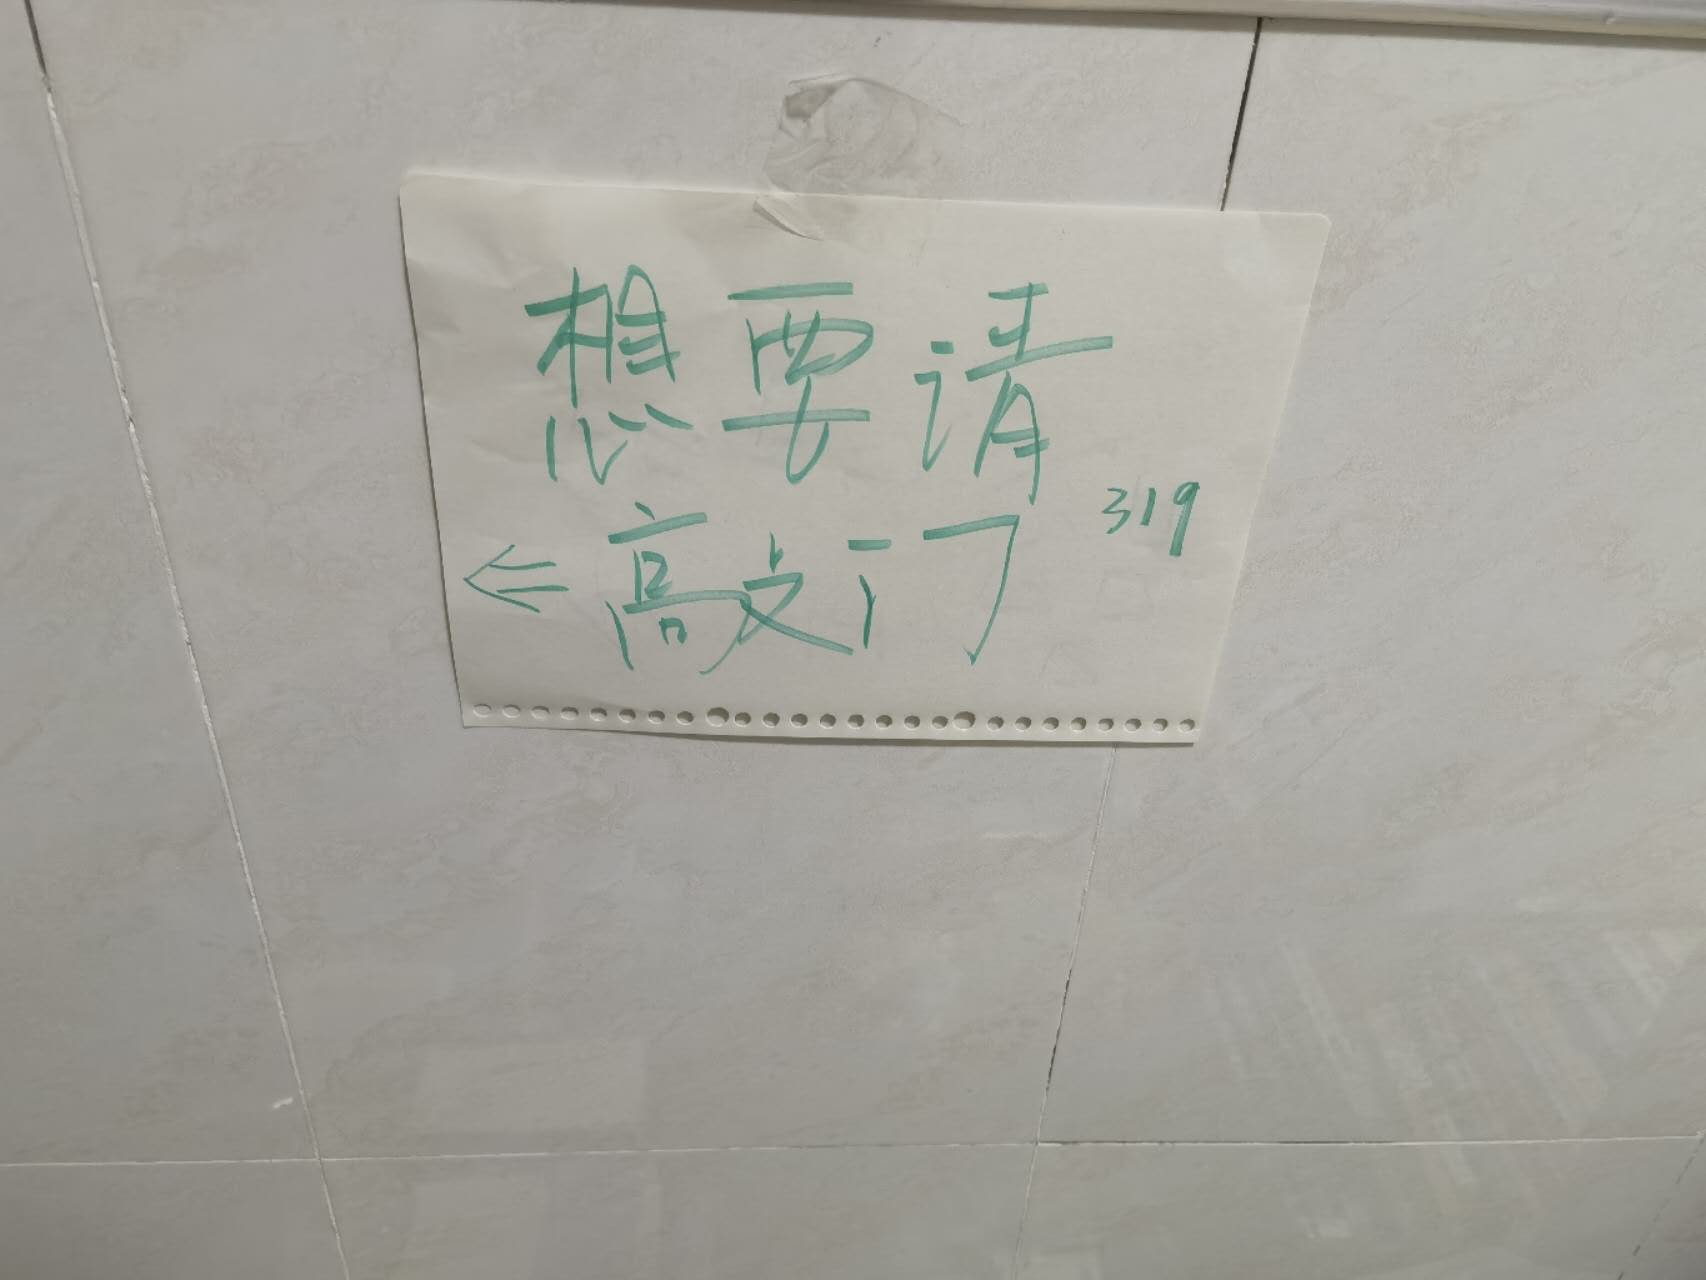 想要请
319
⇐敲门